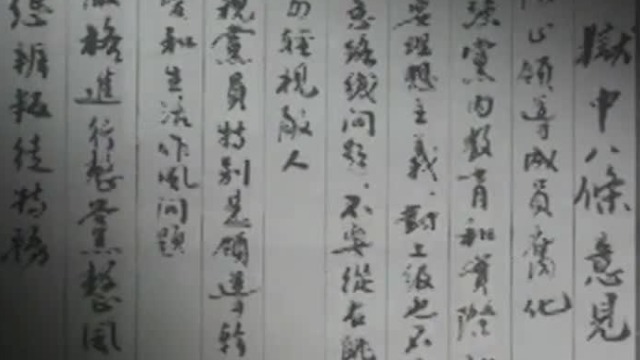 獄中八條意見
止領導成員腐化
強黨内教育和實際
要理想主義,對上級也不
意路綫問題,不要從右跳
勿輕視敵人
視黨員特别是領導幹
愛和生活作風問題
嚴格進行整黨整風
懲辦叛徒特務